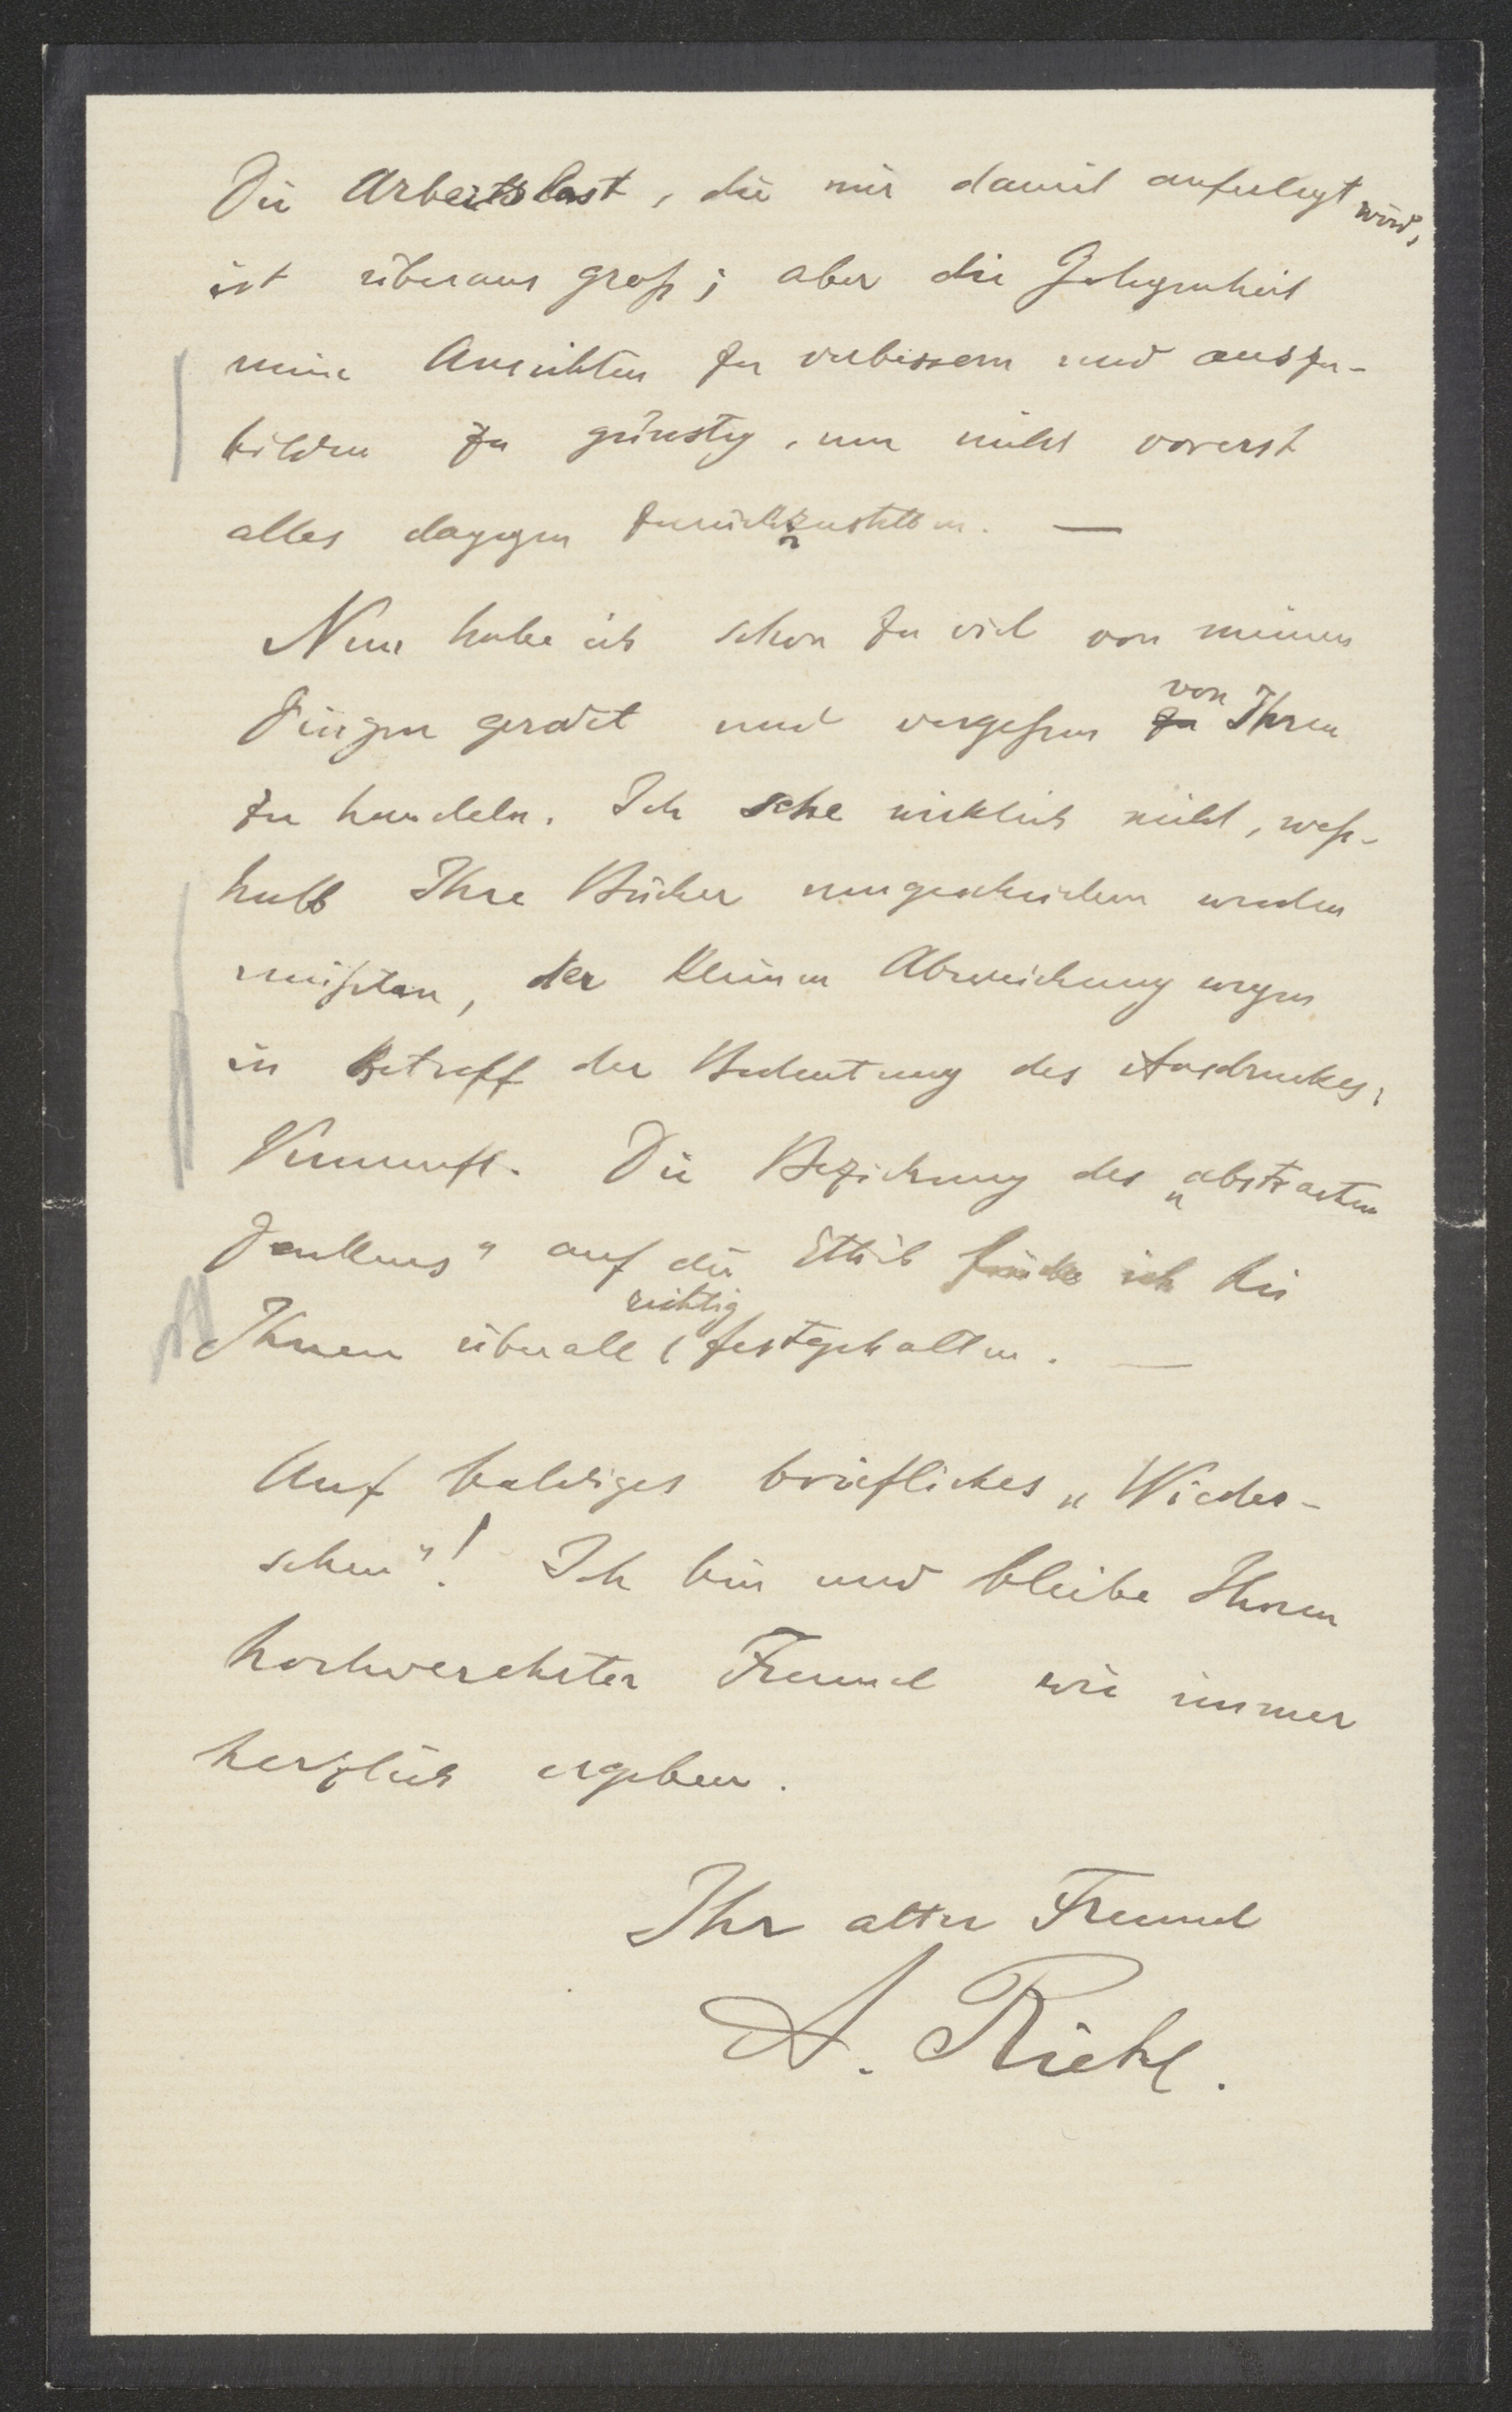 Die Arbeitslast, die mir damit auferlegt wird,
ist überaus groß; aber die Gelegenheit
meine Ansichten zu verbessern und auszu-
bilden zu günstig, um nicht vorerst
alles dagegen zurückzustellen. —
Nun habe ich schon zu viel von meinen
Dingen geredet und vergessen zu von Ihren
zu handeln. Ich sehe wirklich nicht, weß-
halb Ihre Bücher umgeschrieben werden
müßten, der kleinen Abweichung wegen
in Betreff der Bedeutung des Ausdruckes,
Vernunft. Die Beziehung des „abstracten
Denkens" auf die Ethik finde ich bei
Ihnen überall richtig festgehalten. —
Auf baldiges briefliches „Wieder-
sehen"! Ich bin und bleibe Ihnen
hochverehrter Freund wie immer
herzlich ergeben.
Ihr alter Freund
A. Riehl.